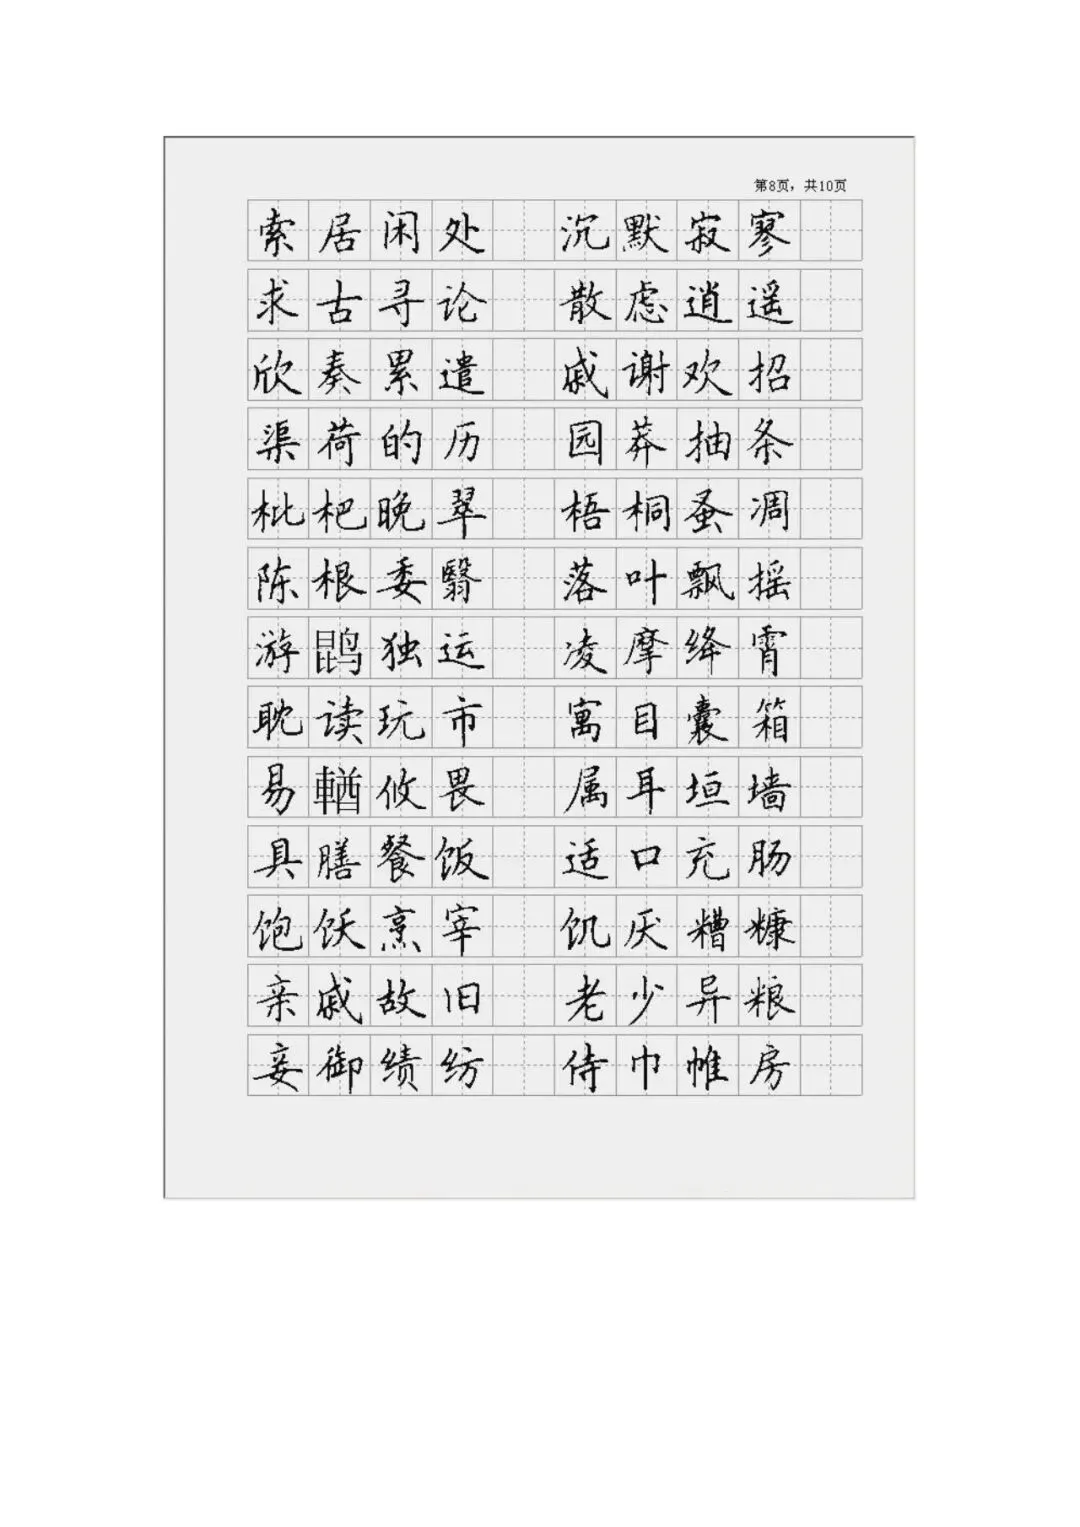 第8页，共10页
索居闲处 沉默寂寥
求古寻论 散虑逍遥
欣奏累遣 戚谢欢招
渠荷的历 园莽抽条
枇杷晚翠 梧桐蚤凋
陈根委翳 落叶飘摇
游鹍独运 凌摩绛霄
耽读玩市 寓目囊箱
易輶攸畏 属耳垣墙
具膳餐饭 适口充肠
饱饫烹宰 饥厌糟糠
亲戚故旧 老少异粮
妾御绩纺 侍巾帷房